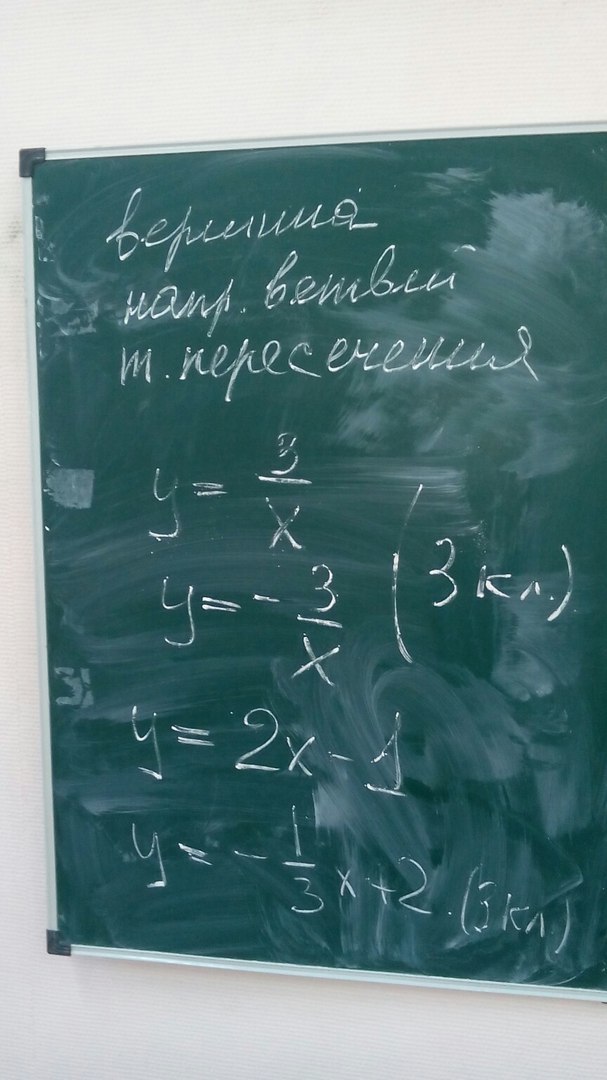 вершина
напр. ветвей
т. пересечения
y = 3/x
y = -3/x (3 кл.)
y = 2x - 1
y = -1/3 x + 2. (3 кл)